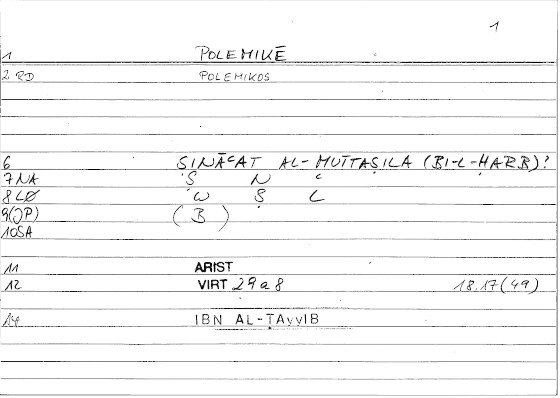 1
1 POLEMIKĒ
2 RD POLEMIKOS
6 ṢINĀʿAT AL-MUTTAṢILA (BI-L-ḤARB)!
7 NA Ṣ N ʿ
8 LØ W Ṣ L
9 (JP) (B)
10 SA
11 ARIST
12 VIRT 29a8 18,17(49)
14 IBN AL-ṬAyyIB